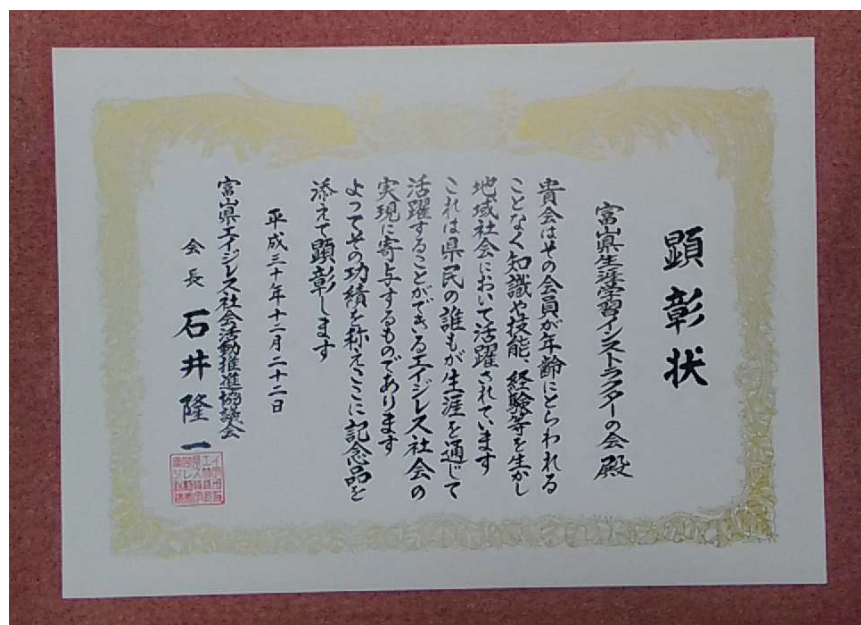 顕彰状
富山県生涯学習インストラクターの会 殿
貴会はその会員が年齢にとらわれる
ことなく知識や技能、経験等を生かし
地域社会において活躍されています
これは県民の誰もが生涯を通じて
活躍することができるエイジレス社会の
実現に寄与するものであります
よってその功績を称えここに記念品を
添えて顕彰します
平成三十年十二月二十二日
富山県エイジレス社会活動推進協議会
会長 石井隆一